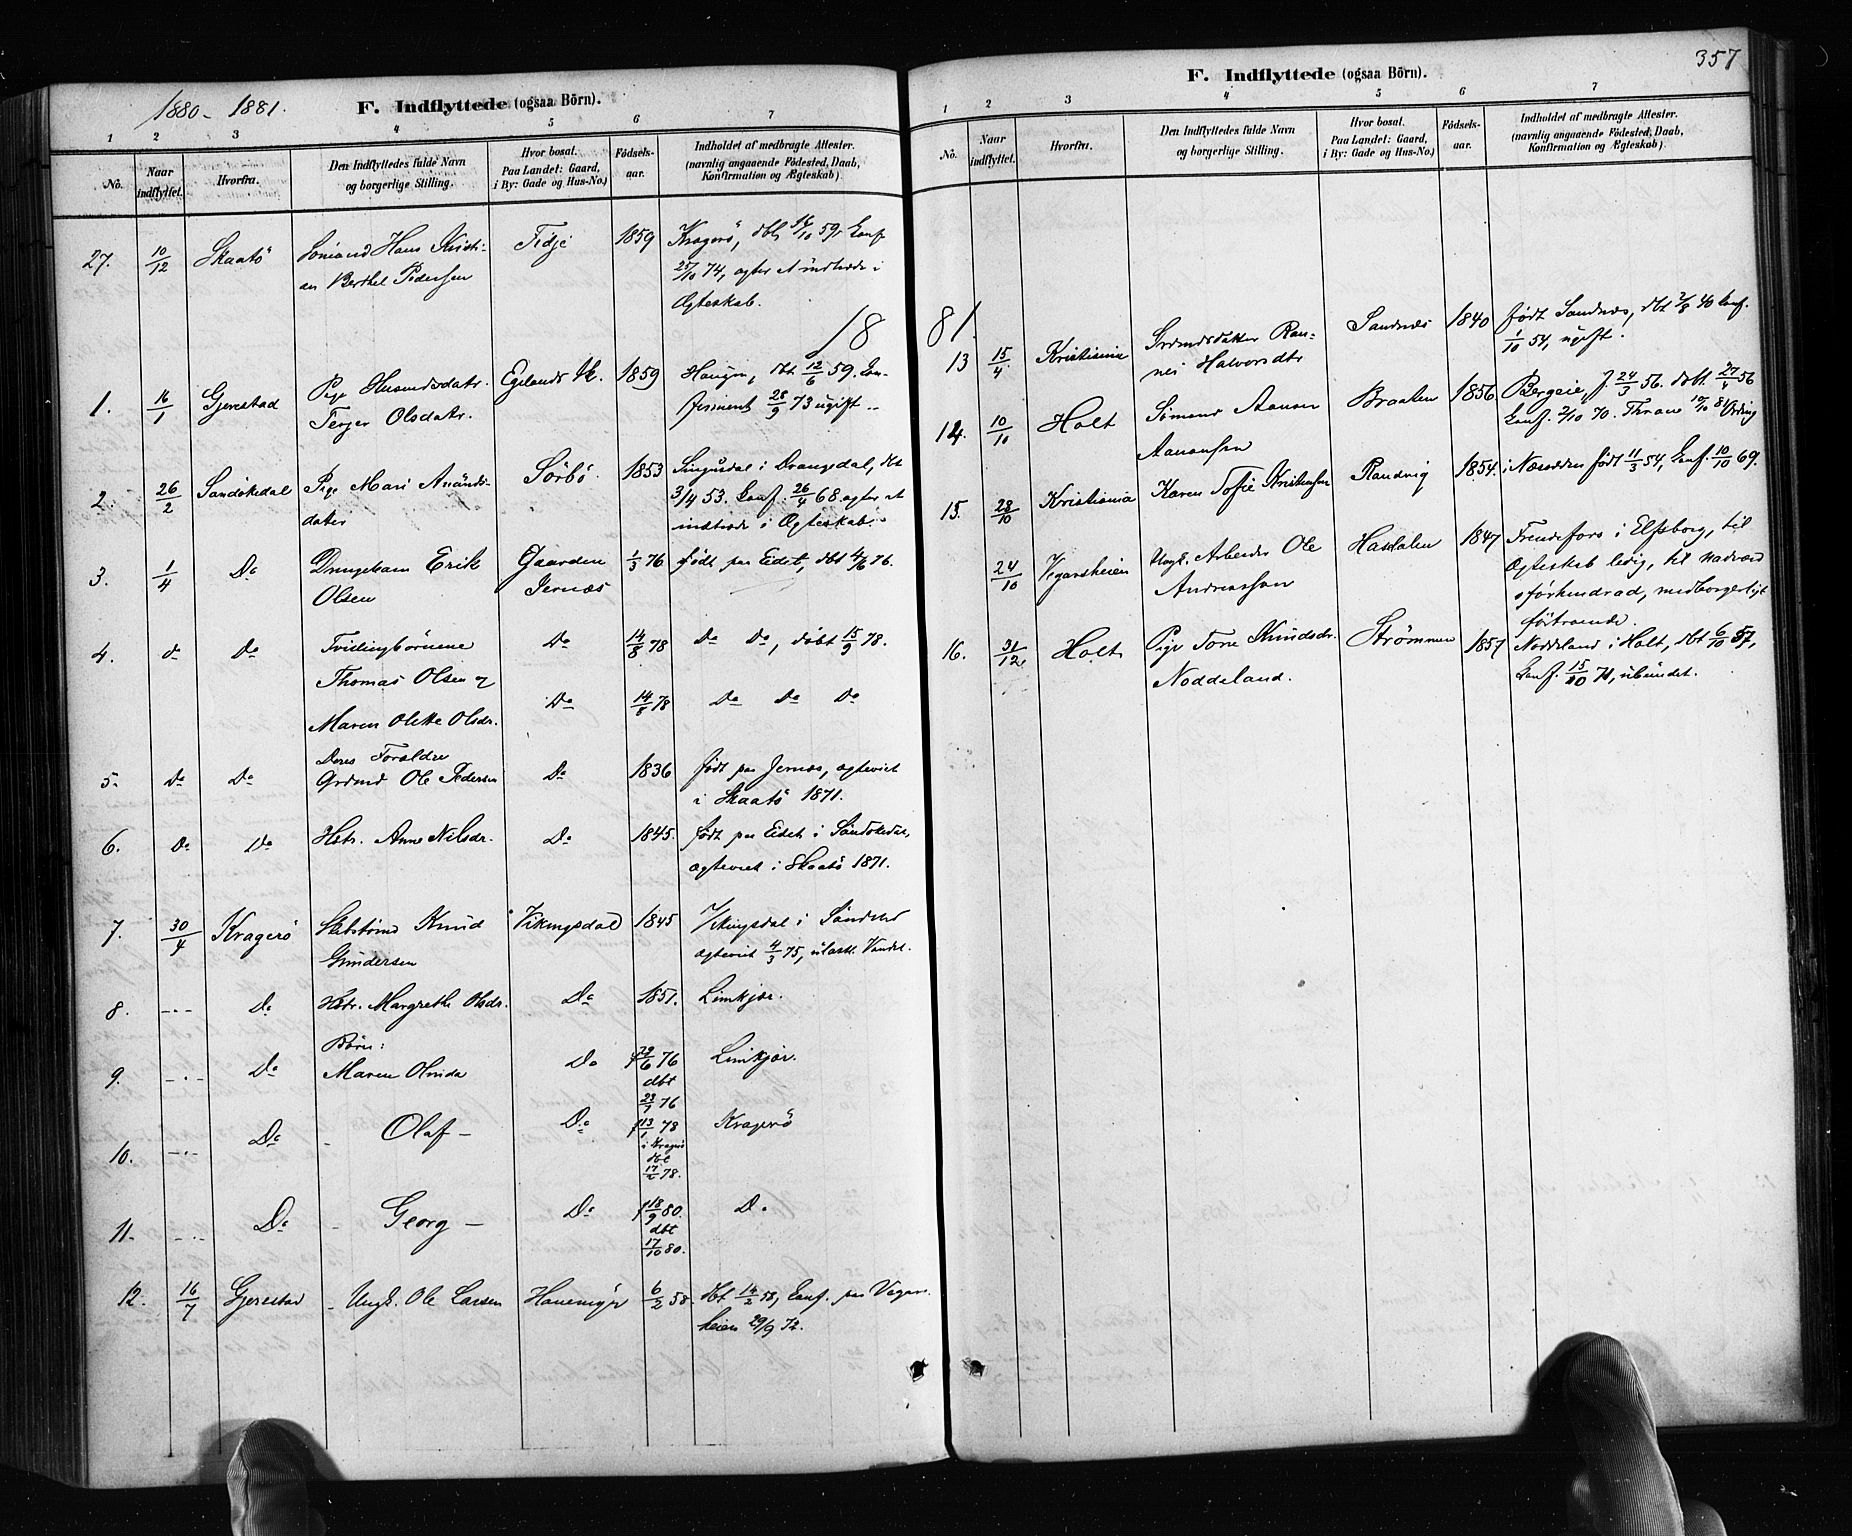 1880 - 1881.
F. Indflyttede (ogsaa Börn).
1 2 3 4 5 6 7
No.
Naar indflyttet.
Hvorfra.
Den Indflyttedes fulde Navn
og borgerlige Stilling.
Hvor bosat.
Paa Landet: Gaard,
i By: Gade og Hus-No.)
Födsels-
aar.
Indholdet af medbragte Attester.
(navnlig angaaende Födested, Daab,
Konfirmation og Ægteskab).
27. 10/12 Skaatö Sömand Hans Kristi- 1859 Kragerö, dbt 16/10 59, Conf
an Berthel Pedersen 25/10 74, agter at indtræde i
Ægteskab.
18
1. 16/1 Gjerestad Pige Husmdsdatr. Egelands Vk. 1859 Haugen, dbt. 12/6 59. Con-
Terjer Olsdatr. firmeret 28/9 73 ugift
2. 26/2 Sandökedal Pige Mari Anunds- Sörbö 1853 i Drangedal, dbt
dater 3/4 53. Conf. 26/4 68 agter at
indtræde i Ægteskab.
3. 1/4 Do Drengebarn Erik Gaarden 1/3 76 født paa Eidet, dbt 4/6 76.
Olsen Jernæs
4. do Do Tvillingbörnene Do 14/8 78 Do Do, döbt 15/9 78.
Thomas Olsen &
Maren Olette Olsdr. Do 14/8 78 Do Do Do
Deres Forældre
5. Do Do Grdmd Ole Pedersen Do 1836 født paa Jernæs, ægteviet
i Skaatö 1871.
6. Do Do Hstr. Anne Nilsdr. Do 1845. født paa Eidet i Sandökedal,
ægteviet i Skaatö 1871.
7. 30/4 Kragerö Knud Vikingsdal 1845 Vikingsdal i Söndeled
Gundersen ægteviet 4/3 75, ulastl. Vandel.
8. -"- Do Hstr. Margrethe Olsdr. Do 1851. Limkjær.
Börn:
9. -"- Do Maren Do f 29/6 76 Limkjær.
dbt
23/7 76
10. -"- Do - Olaf - Do f 13/1 78 Kragerö
i Kragerö
dbt
17/2 78.
11. -"- Do - Georg - Do f 18/9 80. Do
dbt
17/10 80.
12. 16/7 Gjerestad - Ungk. Ole Larsen 6/2 58. dbt 14/2 58, Conf. paa Vegars-
heien 29/9 72.
357
F. Indflyttede (ogsaa Börn).
1 2 3 4 5 6 7
No.
Naar indflyttet.
Hvorfra.
Den Indflyttedes fulde Navn
og borgerlige Stilling.
Hvor bosat.
Paa Landet: Gaard,
i By: Gade og Hus-No.)
Födsels-
aar.
Indholdet af medbragte Attester.
(navnlig angaaende Födested, Daab,
Konfirmation og Ægteskab).
81
13 15/4 Kristiania Grdmdsdatter Ran- Sandnæs 1840 født Sandnæs, dbt 2/8 40 Conf.
nei Halvorsdtr 1/10 54, ugift.
14. 10/10 Holt Sömand Aanon Braaten 1856 Bergeie, f. 24/3 56. döbt. 27/4 56
Aanonsen Conf. 2/10 70.
15. 28/10 Kristiania Karen Sofie Kristensen Randvig 1854. i Næsodden født 11/3 54, Conf. 10/10 69.
24/10 Vegarsheien Ungk. Arbeider Ole Hasdalen 1847 i Elfsborg, til
Andreassen Ægteskab ledig, til nadvard
oförhindrad, medborgerligt
förtroende.
16. 31/12. Holt Pige Tone Knudsdr. Strömmen 1857 Noddeland i Holt, dbt 6/10 57,
Noddeland. Conf. 15/10 71, ubundet.